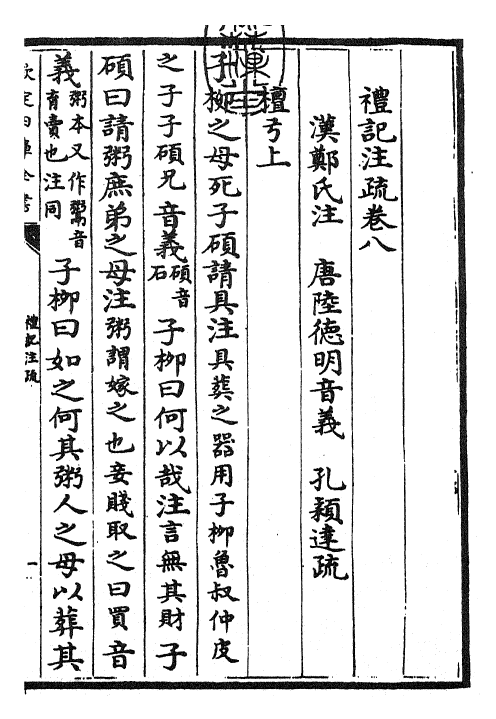 禮記注疏卷八
漢鄭氏注　唐陸德明音義　孔穎達疏
檀弓上
子柳之母死子碩請具注具葬之器用子柳魯叔仲皮
之子子碩兄音義碩音石子柳曰何以哉注言無其財子
碩曰請粥庶弟之母注粥謂嫁之也妾賤取之曰買音
義粥本又作鬻音育賣也注同子柳曰如之何其粥人之母以葬其
禮記注疏
一